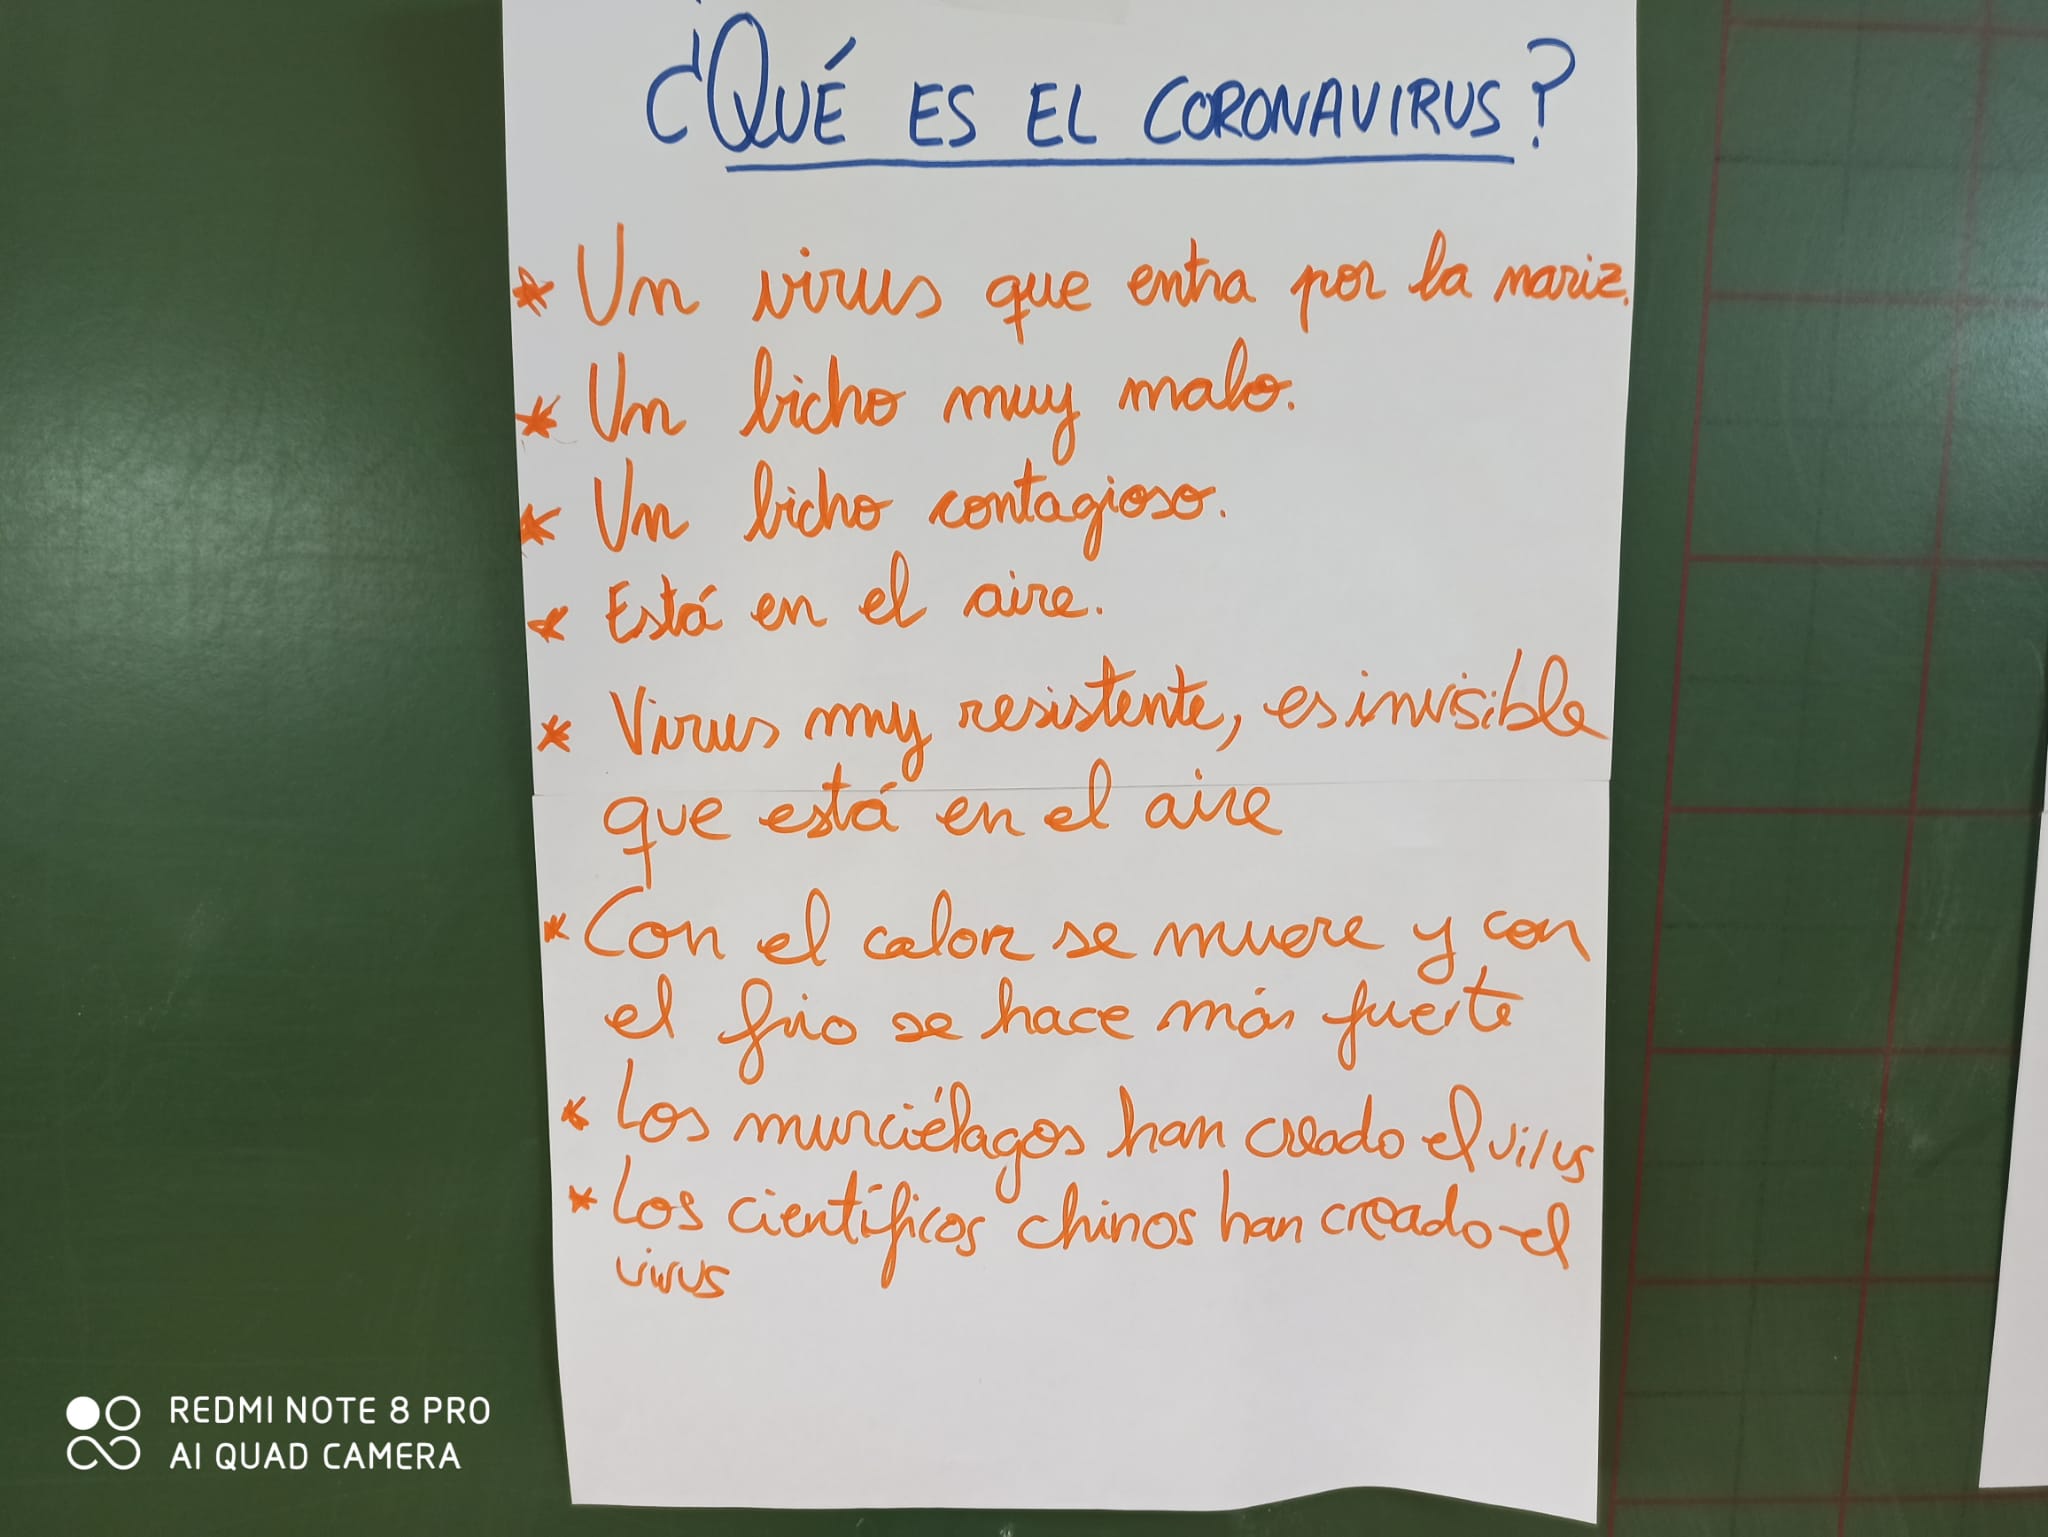 ¿QUÉ ES EL CORONAVIRUS?
* Un virus que entra por la nariz.
* Un bicho muy malo.
* Un bicho contagioso.
* Está en el aire.
* Virus muy resistente, es invisible
que está en el aire
* Con el calor se muere y con
el frio se hace más fuerte
* Los murciélagos han creado el virus
* Los científicos chinos han creado el
virus
REDMI NOTE 8 PRO
AI QUAD CAMERA